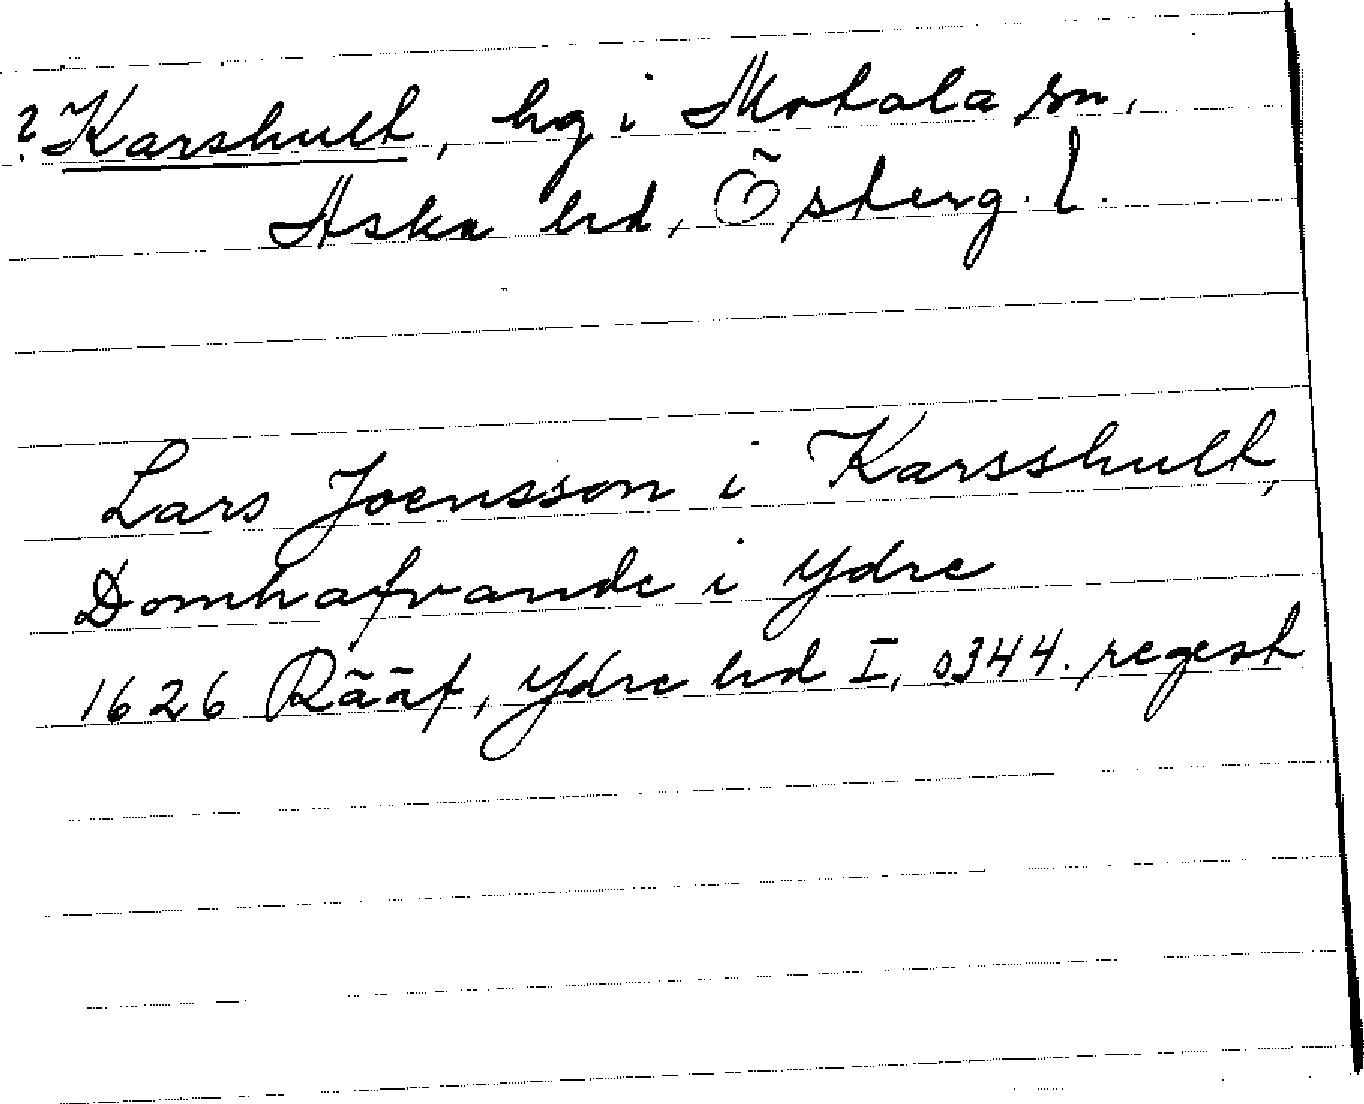 ? Karshult, hg i Motala sn,
Aska hd, Österg. l.
Lars Joensson i Karsshult,
Domhafvande i Ydre
1626 Rääf, Ydre hd I, s344. regest